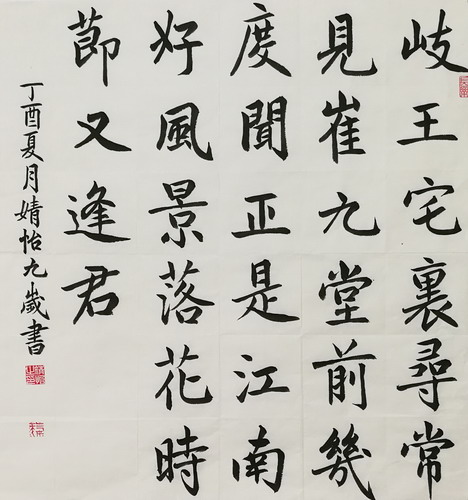 歧王宅裏尋常
見崔九堂前幾
度聞正是江南
好風景落花時
節又逢君
丁酉夏月婧怡九歲書